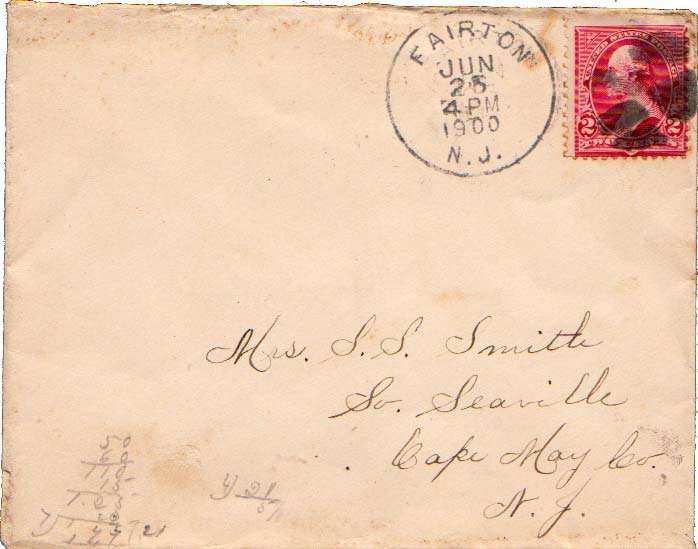 FAIRTON
JUN
25
4 PM
1900
N. J.
UNITED STATES
2 2
Mrs. S. S. Smith
So. Seaville
Cape May Co.
N. J.
21